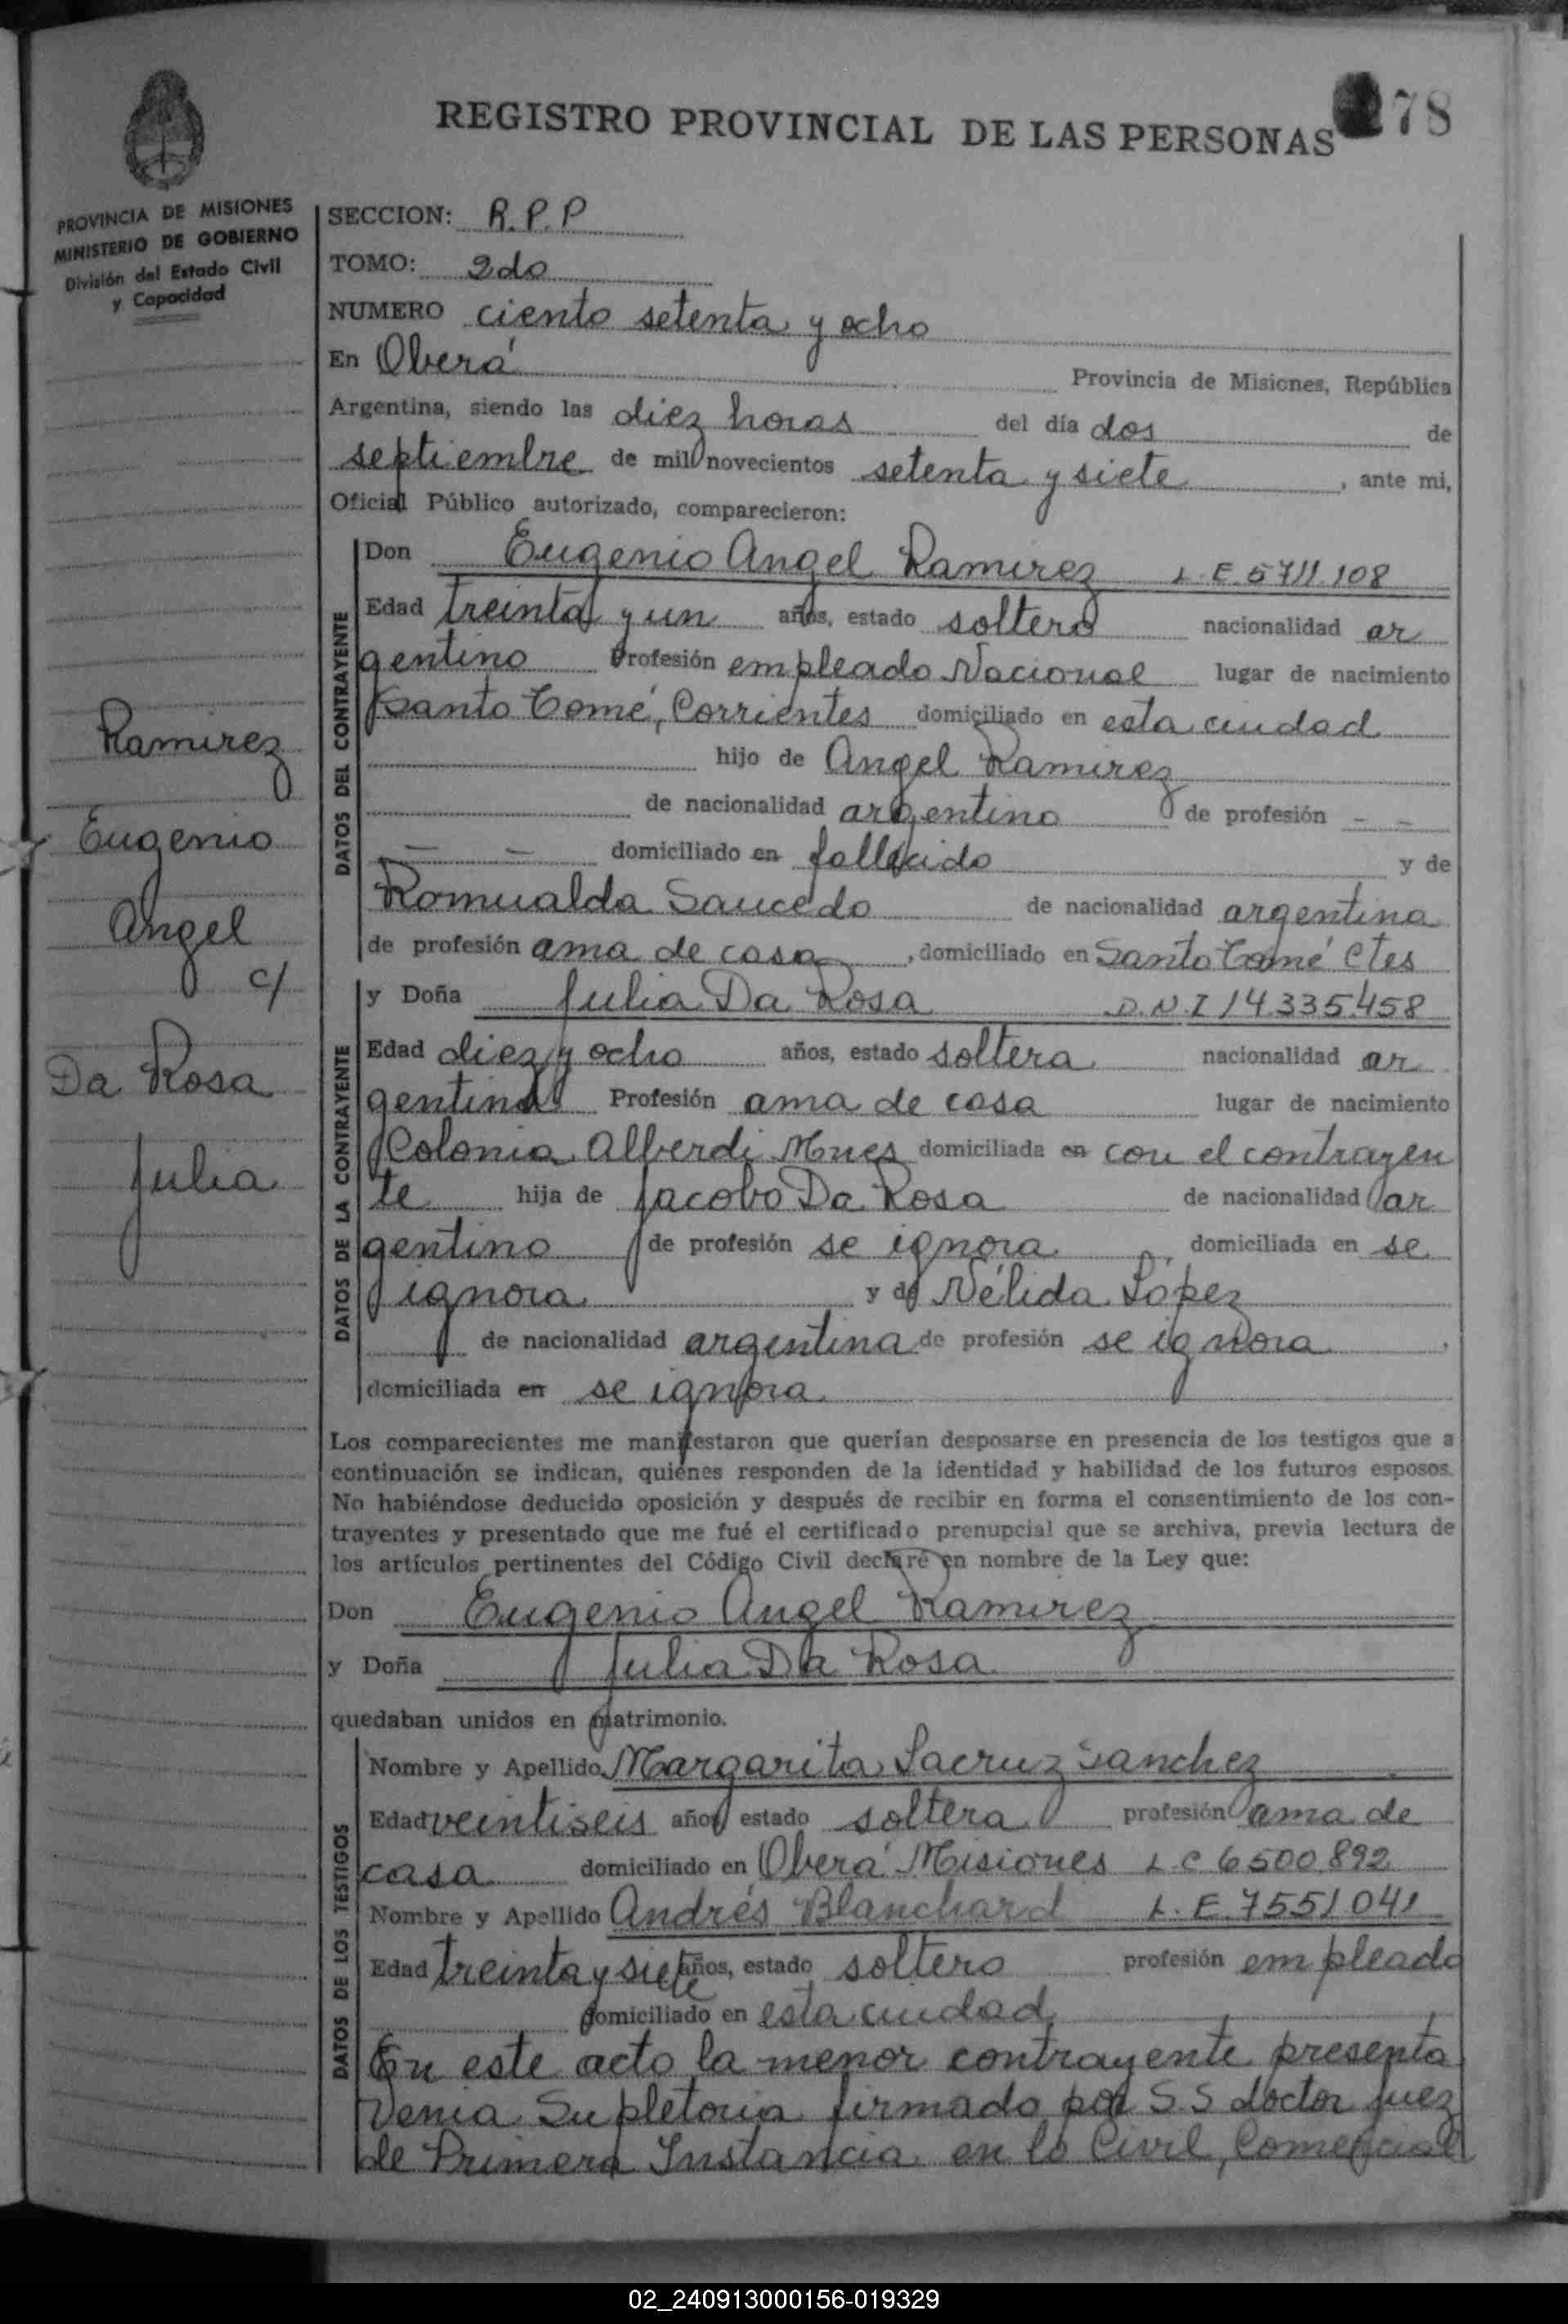 REGISTRO PROVINCIAL DE LAS PERSONAS
78
PROVINCIA DE MISIONES
MINISTERIO DE GOBIERNO
División del Estado Civil
y Capacidad
SECCION: R.P.P
TOMO: 2do
NUMERO ciento setenta y ocho
En Oberá Provincia de Misiones, República
Argentina, siendo las diez horas del día dos de
septiembre de mil novecientos setenta y siete, ante mi,
Oficial Público autorizado, comparecieron:
Ramirez
Eugenio
Angel
c/
Da Rosa
Julia
DATOS DEL CONTRAYENTE
Don Eugenio Angel Ramirez L.E. 5711.108
Edad treinta y un años, estado soltero nacionalidad ar
gentino Profesión empleado Nacional lugar de nacimiento
Santo Tomé, Corrientes domiciliado en esta ciudad
hijo de Angel Ramirez
de nacionalidad argentino de profesión - -
- - domiciliado en fallecido y de
Romualda Saucedo de nacionalidad argentina
de profesión ama de casa, domiciliado en Santo Tomé Ctes
DATOS DE LA CONTRAYENTE
y Doña Julia Da Rosa D.N.I 14.335.458
Edad diez y ocho años, estado soltera nacionalidad ar
gentina Profesión ama de casa lugar de nacimiento
Colonia Alberdi Mnes domiciliada en con el contrayen
te hija de Jacobo Da Rosa de nacionalidad ar
gentino de profesión se ignora, domiciliada en se
ignora y de Nélida López
de nacionalidad argentina de profesión se ignora,
domiciliada en se ignora
Los comparecientes me manifestaron que querían desposarse en presencia de los testigos que a
continuación se indican, quiénes responden de la identidad y habilidad de los futuros esposos.
No habiéndose deducido oposición y después de recibir en forma el consentimiento de los con-
trayentes y presentado que me fué el certificado prenupcial que se archiva, previa lectura de
los artículos pertinentes del Código Civil declaré en nombre de la Ley que:
Don Eugenio Angel Ramirez
y Doña Julia Da Rosa
quedaban unidos en matrimonio.
DATOS DE LOS TESTIGOS
Nombre y Apellido Margarita Lacruz Sanchez
Edad veintiseis años estado soltera profesión ama de
casa domiciliado en Oberá Misiones L.C 6500.892
Nombre y Apellido Andrés Blanchard L.E. 7551041
Edad treinta y siete años, estado soltero profesión empleado
domiciliado en esta ciudad
En este acto la menor contrayente presenta
Venia Supletoria firmado por S.S doctor Juez
de Primera Instancia en lo Civil, Comercial
02_240913000156-019329